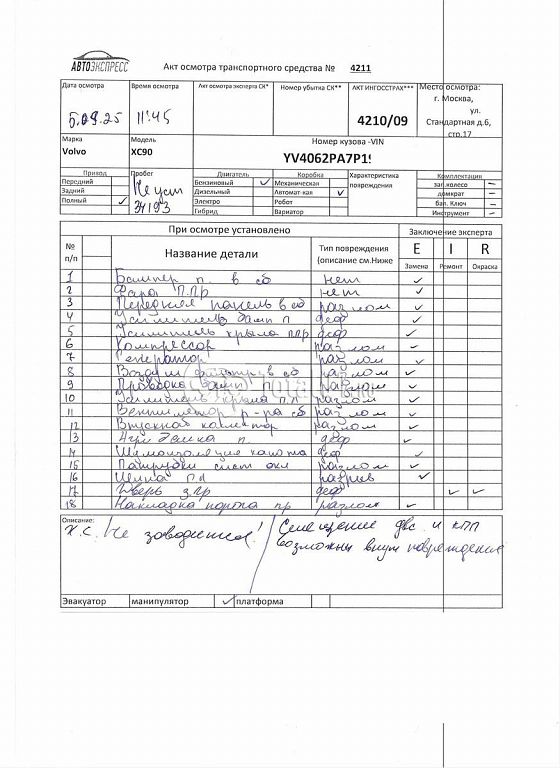 АВТОЭКСПРЕСС
Акт осмотра транспортного средства № 4211
Дата осмотра Время осмотра Акт осмотра эксперта СК* Номер убытка СК** АКТ ИНГОССТРАХ*** Место осмотра:
5.09.25 11:45 4210/09 г. Москва,
ул.
Стандартная д.6,
стр.17
Марка Модель Номер кузова -VIN
Volvo XC90 YV4062PA7P1
Привод Пробег Двигатель Коробка Характеристика повреждения Комплектация
Передний Бензиновый ✓ Механическая зап.колесо –
Задний Не уст Дизельный Автомат-кая ✓ домкрат –
Полный ✓ 34193 Электро Робот бал. Ключ –
Гибрид Вариатор Инструмент –
При осмотре установлено Заключение эксперта
№ п/п Название детали Тип повреждения (описание см.Ниже E I R
Замена Ремонт Окраска
1 Бампер п. в сб нет ✓
2 Фара п.пр нет ✓
3 Передняя панель в сб разлом ✓
4 Усилитель бамп п деф ✓
5 Усилитель крыла ппр деф ✓
6 Компрессор разлом ✓
7 Генератор разлом ✓
8 Воздуш фильтр в сб разлом ✓
9 Проводка разлом ✓
10 Усилитель крыла п.л разлом ✓
11 Вентилятор р-ра сб разлом ✓
12 Впускной коллектор разлом ✓
3 п деф ✓
14 Шумоизоляция капота деф ✓
15 Патрубки сист охл разлом ✓
16 п.п разрыв ✓
17 Дверь з.пр деф ✓ ✓
18 Накладка порога пр разлом ✓
Описание:
Х.С. Не заводится! / Смещение двс и КПП
возможны внут повреждение
Эвакуатор манипулятор ✓ платформа